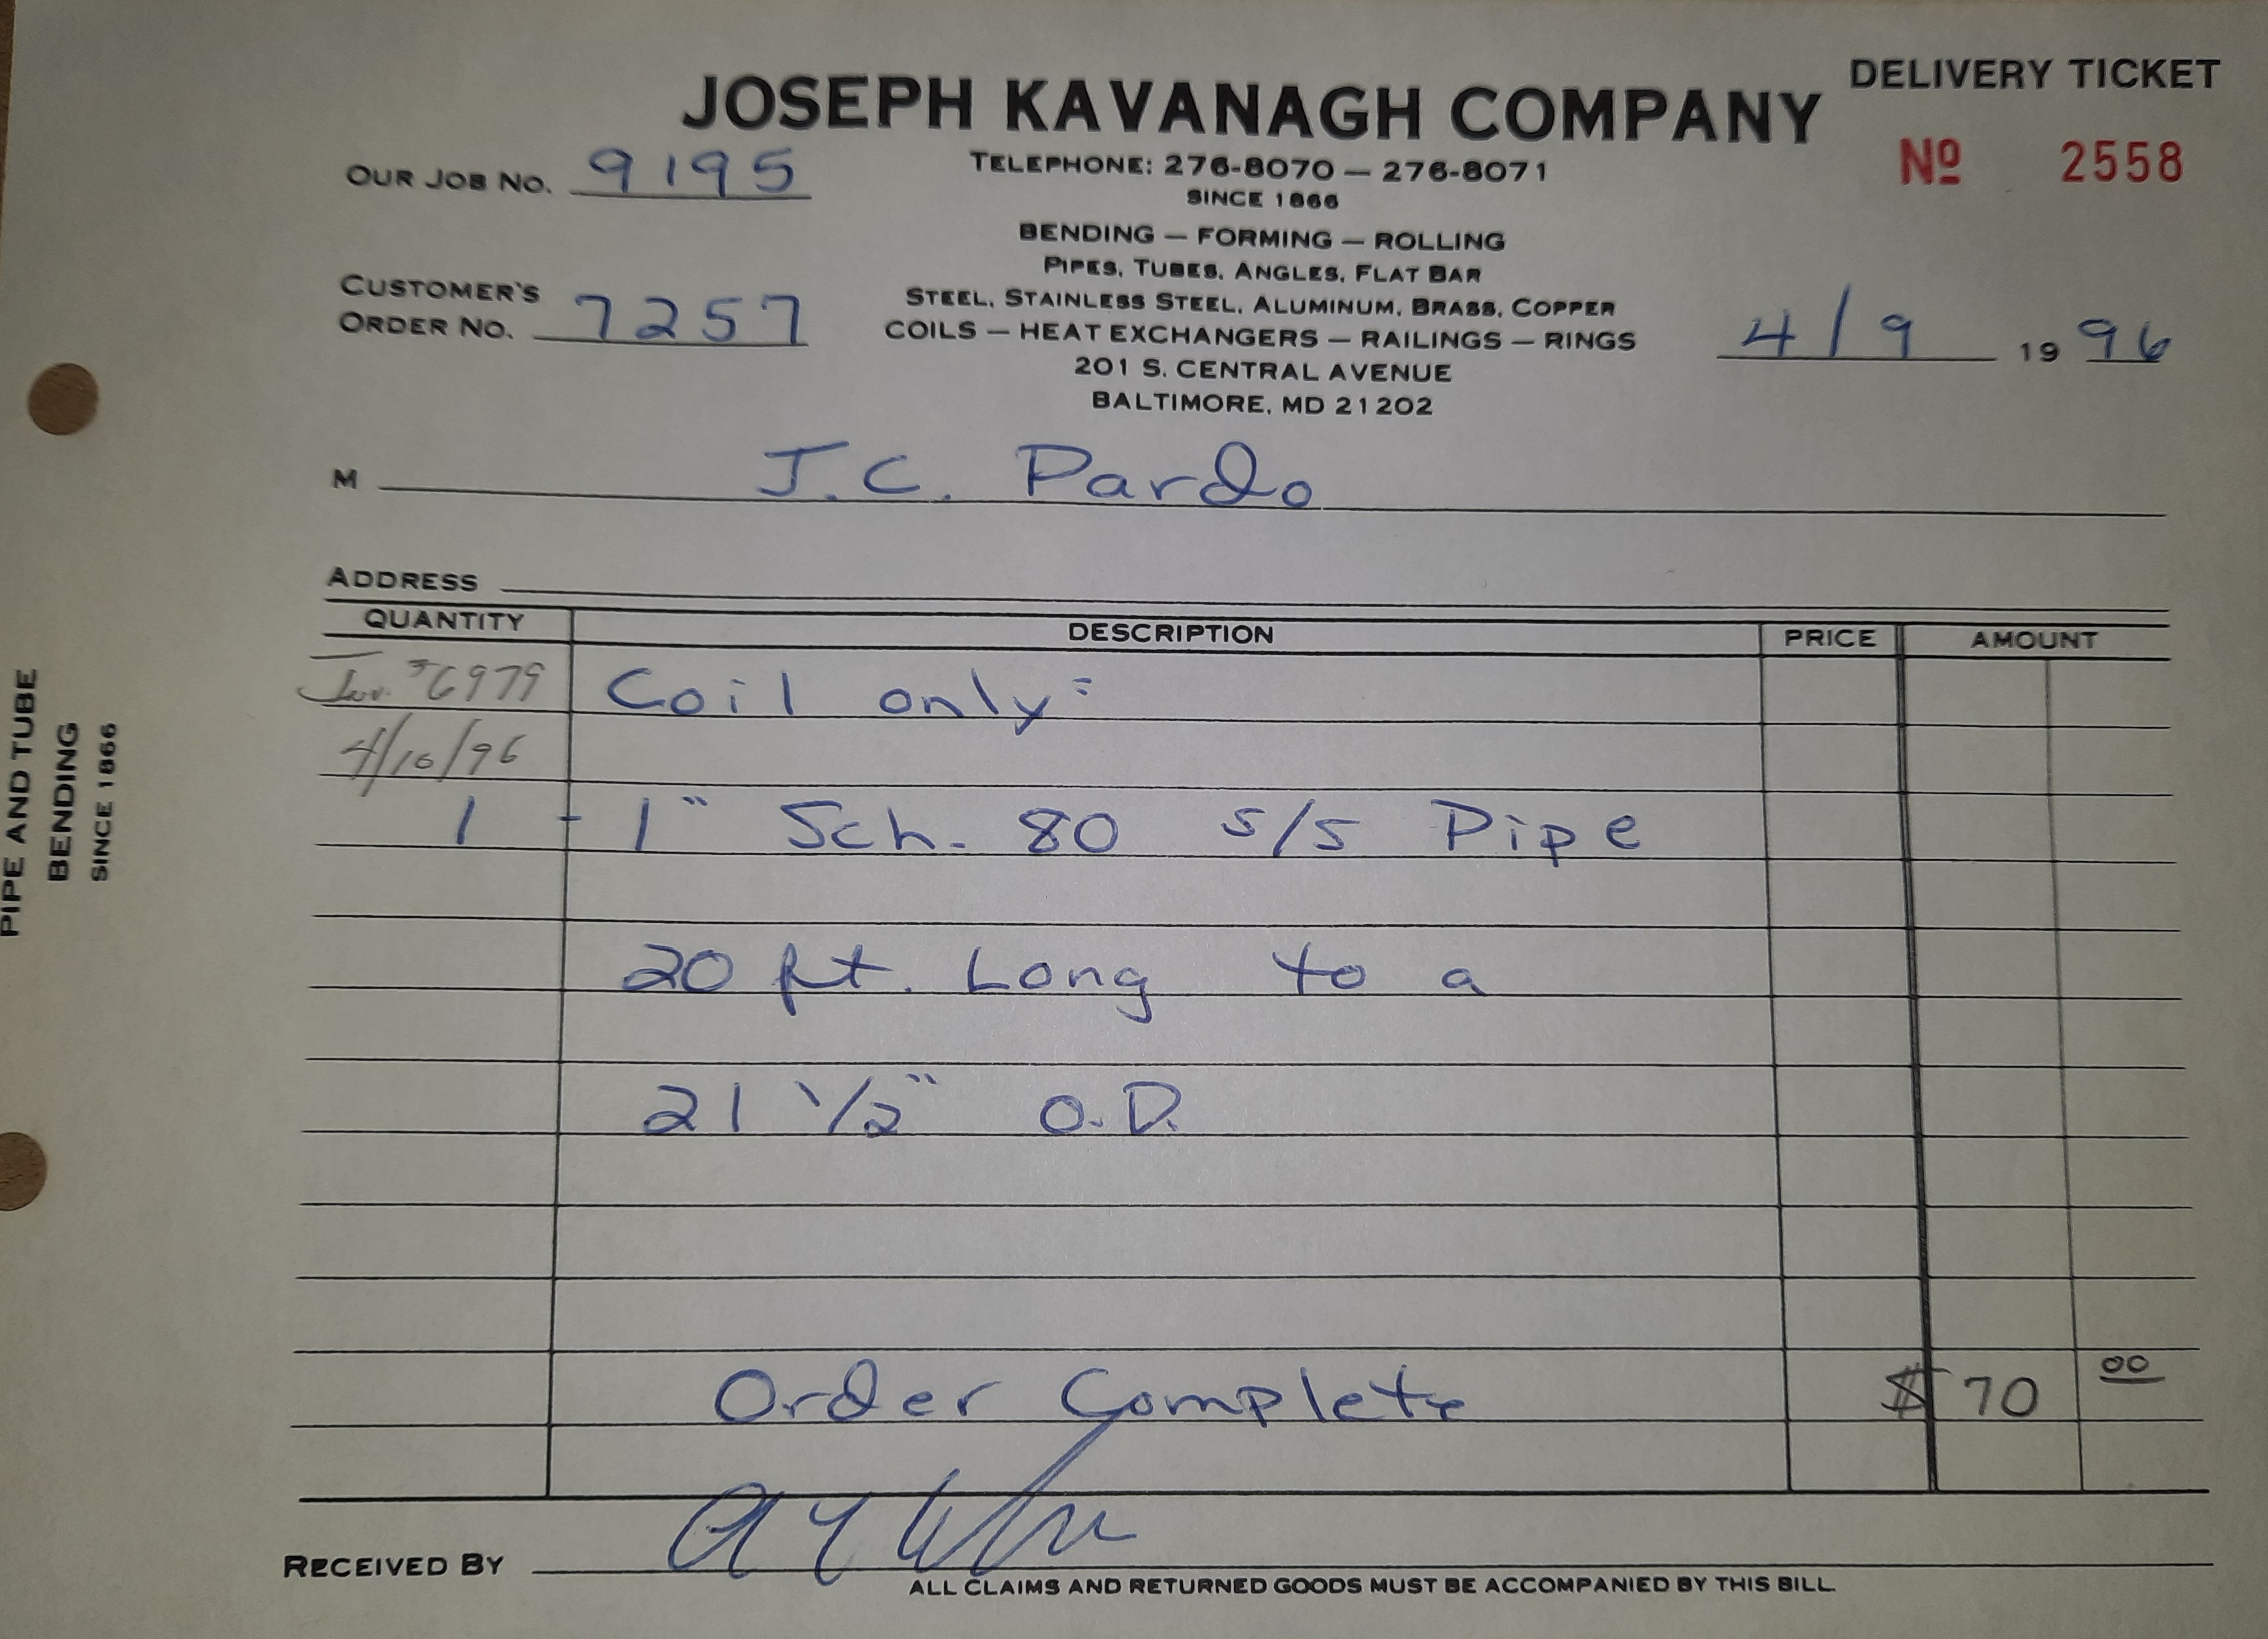 DELIVERY TICKET
JOSEPH KAVANAGH COMPANY
Nº 2558
OUR JOB NO. 9195
TELEPHONE: 276-8070 — 276-8071
SINCE 1866
BENDING — FORMING — ROLLING
PIPES, TUBES, ANGLES, FLAT BAR
CUSTOMER'S
ORDER NO. 7257
STEEL, STAINLESS STEEL, ALUMINUM, BRASS, COPPER
COILS — HEAT EXCHANGERS — RAILINGS — RINGS
4/9 1996
201 S. CENTRAL AVENUE
BALTIMORE, MD 21202
M J.C. Pardo
ADDRESS
QUANTITY DESCRIPTION PRICE AMOUNT
Inv. #6979 Coil only:
4/10/96
1 - 1" Sch. 80 s/s Pipe
20 ft. Long to a
21 1/2" O.D.
Order Complete $70 00
RECEIVED BY
ALL CLAIMS AND RETURNED GOODS MUST BE ACCOMPANIED BY THIS BILL.
PIPE AND TUBE
BENDING
SINCE 1866